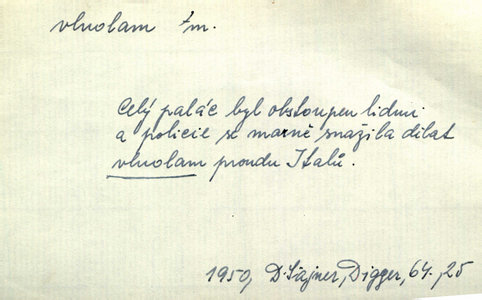 vlnolam ⁊m.
Celý palác byl obstoupen lidmi
a policie se marně snažila dělat
vlnolam proudu Italů.
1950, D. Šajner, Digger, 64, 25